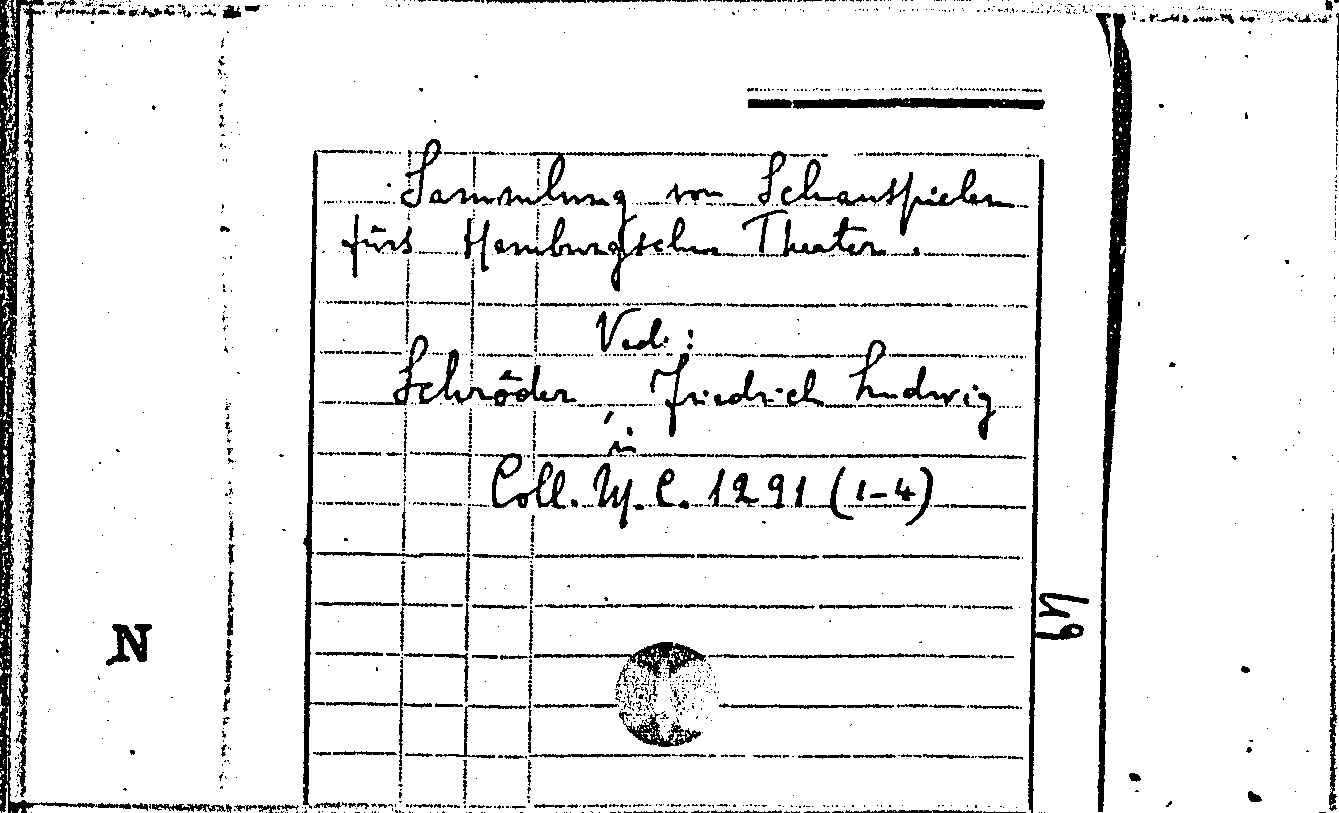 Sammlung von Schauspielen
fürs Hamburgschen Theater.
Ved.:
Schröder, Friedrich Ludwig
in
Coll. M. C. 1291 (1-4)
N